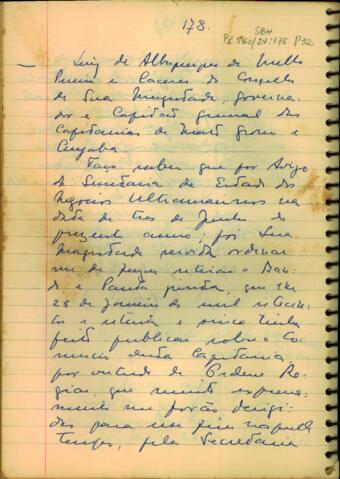 178.
SBH
Pt 560/24:178 P32
Luiz de Albuquerque de Mello
Pereira e Caceres do Conselho
de Sua Magestade, governa-
dor e Capitão general das
Capitanias de Mato Grosso e
Cuyaba.
Faço saber que por Avizo
da Secretaria de Estado dos
Negocios Ultramarinos na
data de tres de Junho do
prezente anno, foi Sua
Magestade servida ordenar
me de fazer o Ban-
do e Pauta que em
28 de Janeiro de mil setecen-
tos e setenta e sinco tinha
feito publicar sobre o Co-
mercio desta Capitania
por virtude de Ordens Re-
gias, que muito expressa-
mente me forão dirigi-
das para um fim naquelle
tempo, pela Secretaria